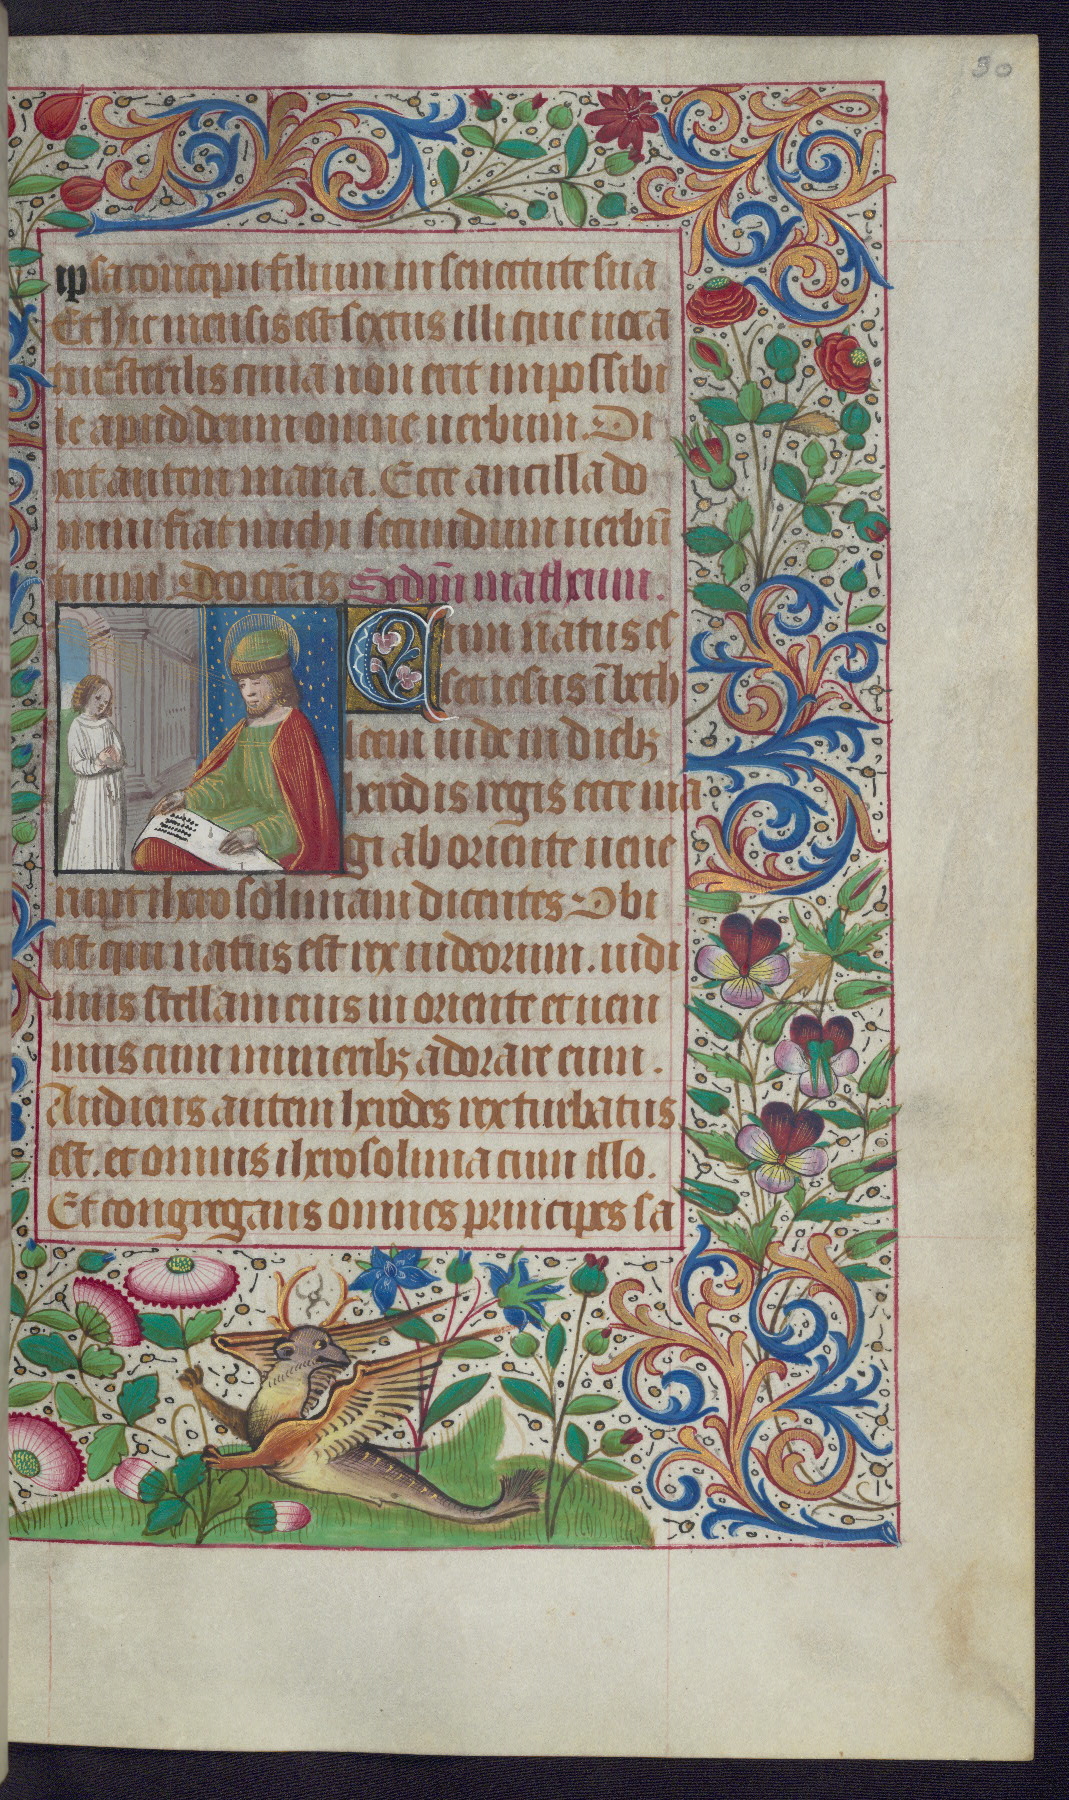 30
ipsa concepit filium in senectute sua
Et hic mensis est sextus illi que uoca
tur sterilis quia non erit impossibi
le apud deum omne uerbum. Di
xit autem maria. Ecce ancilla do
mini fiat michi secundum uerbū
tuum. Deo grās Scdm̄ matheum.
Cum natus es
set iesus ī beth
leem iude in dieb
herodis regis ecce ma
gi ab oriente uene
runt iherosolimam dicentes Vbi
est qui natus est rex iudeorum. uidi
mus stellam eius in oriente et ueni
mus cum munerib adorare eum.
Audiens autem herodes rex turbatus
est. et omnis iherosolima cum illo.
Et congregans omnes principes sa